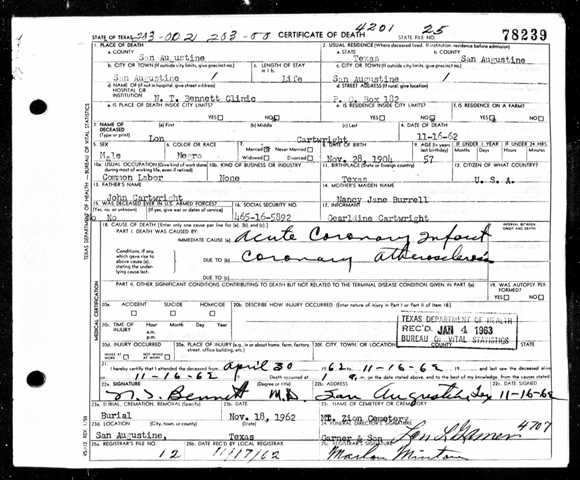 4201 25
STATE OF TEXAS 203-00 2 203-00 CERTIFICATE OF DEATH 78239
1. PLACE OF DEATH 2. USUAL RESIDENCE (Where deceased lived. If institution, residence before admission)
a. COUNTY San Augustine a. STATE Texas b. COUNTY San Augustine
b. CITY OR TOWN (If outside city limits, give precinct no.) c. LENGTH OF STAY in 1 b. c. CITY OR TOWN (If outside city limits, give precinct no.)
San Augustine / Life San Augustine /
d. NAME OF (If not in hospital, give street address) HOSPITAL OR INSTITUTION d. STREET ADDRESS (If rural, give location)
N. T. Bennett Clinic P. O. Box 182
e. IS PLACE OF DEATH INSIDE CITY LIMITS? YES NO e. IS RESIDENCE INSIDE CITY LIMITS? YES NO f. IS RESIDENCE ON A FARM? YES NO
3. NAME OF DECEASED (Type or print) (a) First (b) Middle (c) Last 4. DATE OF DEATH
Lon Cartwright 11-16-62
5. SEX 6. COLOR OR RACE 7. Married Never Married Widowed Divorced 8. DATE OF BIRTH 9. AGE (In years last birthday) IF UNDER 1 YEAR Months Days IF UNDER 24 HRS Hours Min.
Male Negro Nov. 28, 1904 57
10a. USUAL OCCUPATION (Give kind of work done 10b. KIND OF BUSINESS OR INDUSTRY 11. BIRTHPLACE (State or foreign country) 12. CITIZEN OF WHAT COUNTRY?
Common Labor None Texas U. S. A.
13. FATHER'S NAME 14. MOTHER'S MAIDEN NAME
John Cartwright Nancy Jane Burrell
15. WAS DECEASED EVER IN U.S. ARMED FORCES?
(Yes, no, or unknown) (If yes, give war or dates of service)
No 465-16-5892 Gearldine Cartwright
18. CAUSE OF DEATH [Enter only one cause per line for (a), (b), and (c).] INTERVAL BETWEEN ONSET AND DEATH
PART I. DEATH WAS CAUSED BY:
IMMEDIATE CAUSE (a) Acute Coronary Infarct
Conditions, if any, which gave rise to above cause (a), stating the underlying cause last. DUE TO (b) Coronary Atherosclerosis
DUE TO (c)
PART II. OTHER SIGNIFICANT CONDITIONS CONTRIBUTING TO DEATH BUT NOT RELATED TO THE TERMINAL DISEASE CONDITION GIVEN IN PART I(a) 19. WAS AUTOPSY PERFORMED? YES NO
20a. ACCIDENT SUICIDE HOMICIDE 20b. DESCRIBE HOW INJURY OCCURRED. (Enter nature of injury in Part I or Part II of item 18)
20c. TIME OF INJURY Hour Month Day Year
TEXAS DEPARTMENT OF HEALTH
REC'D JAN 4 1963
BUREAU OF VITAL STATISTICS
20d. INJURY OCCURRED WHILE AT WORK NOT WHILE AT WORK 20e. PLACE OF INJURY (e.g., in or about home, farm, factory, street, office building, etc.) COUNTY STATE
21. I hereby certify that I attended the deceased from April 30 1962 11-16-62
11-16-62 Death occurred at
22a. SIGNATURE 22b. ADDRESS 22c. DATE SIGNED
N. T. Bennett M.D. San Augustine Tex 11-16-62
23a. BURIAL, CREMATION, REMOVAL (Specify) 23b. DATE 23c. NAME OF CEMETERY OR CREMATORY
Burial Nov. 18, 1962 Mt. Zion Cemetery
23d. LOCATION (City, town, or county) (State) 24. FUNERAL DIRECTOR'S SIGNATURE 4707
San Augustine, Texas Garner & Son
25a. REGISTRAR'S FILE NO. 25b. DATE REC'D BY LOCAL REGISTRAR 25c. REGISTRAR'S SIGNATURE
12 11/17/62 Marlon Minton
TEXAS DEPARTMENT OF HEALTH — BUREAU OF VITAL STATISTICS
MEDICAL CERTIFICATION